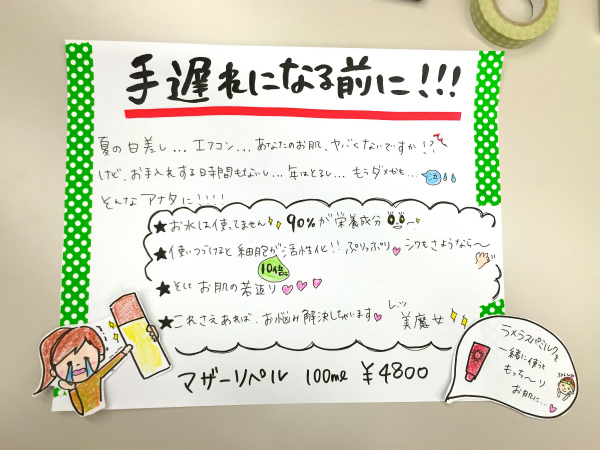 手遅れになる前に!!!
夏の日差し...エアコン...あなたのお肌、ヤバくないですか!?
けど、お手入れする時間もないし...年はとるし...もうダメかも...
そんなアナタに!!!!
★お水は使ってません 90%が栄養成分
★使いつづけると細胞が活性化!! ぷりっぷり シワもさようなら〜
10倍
★そしてお肌の若返り
★これさえあれば、お悩み解決しちゃいます
レッツ
美魔女
マザーリペル 100ml ¥4800
ラメラスパミルクを
一緒に使うと
もっち〜り
お肌に...